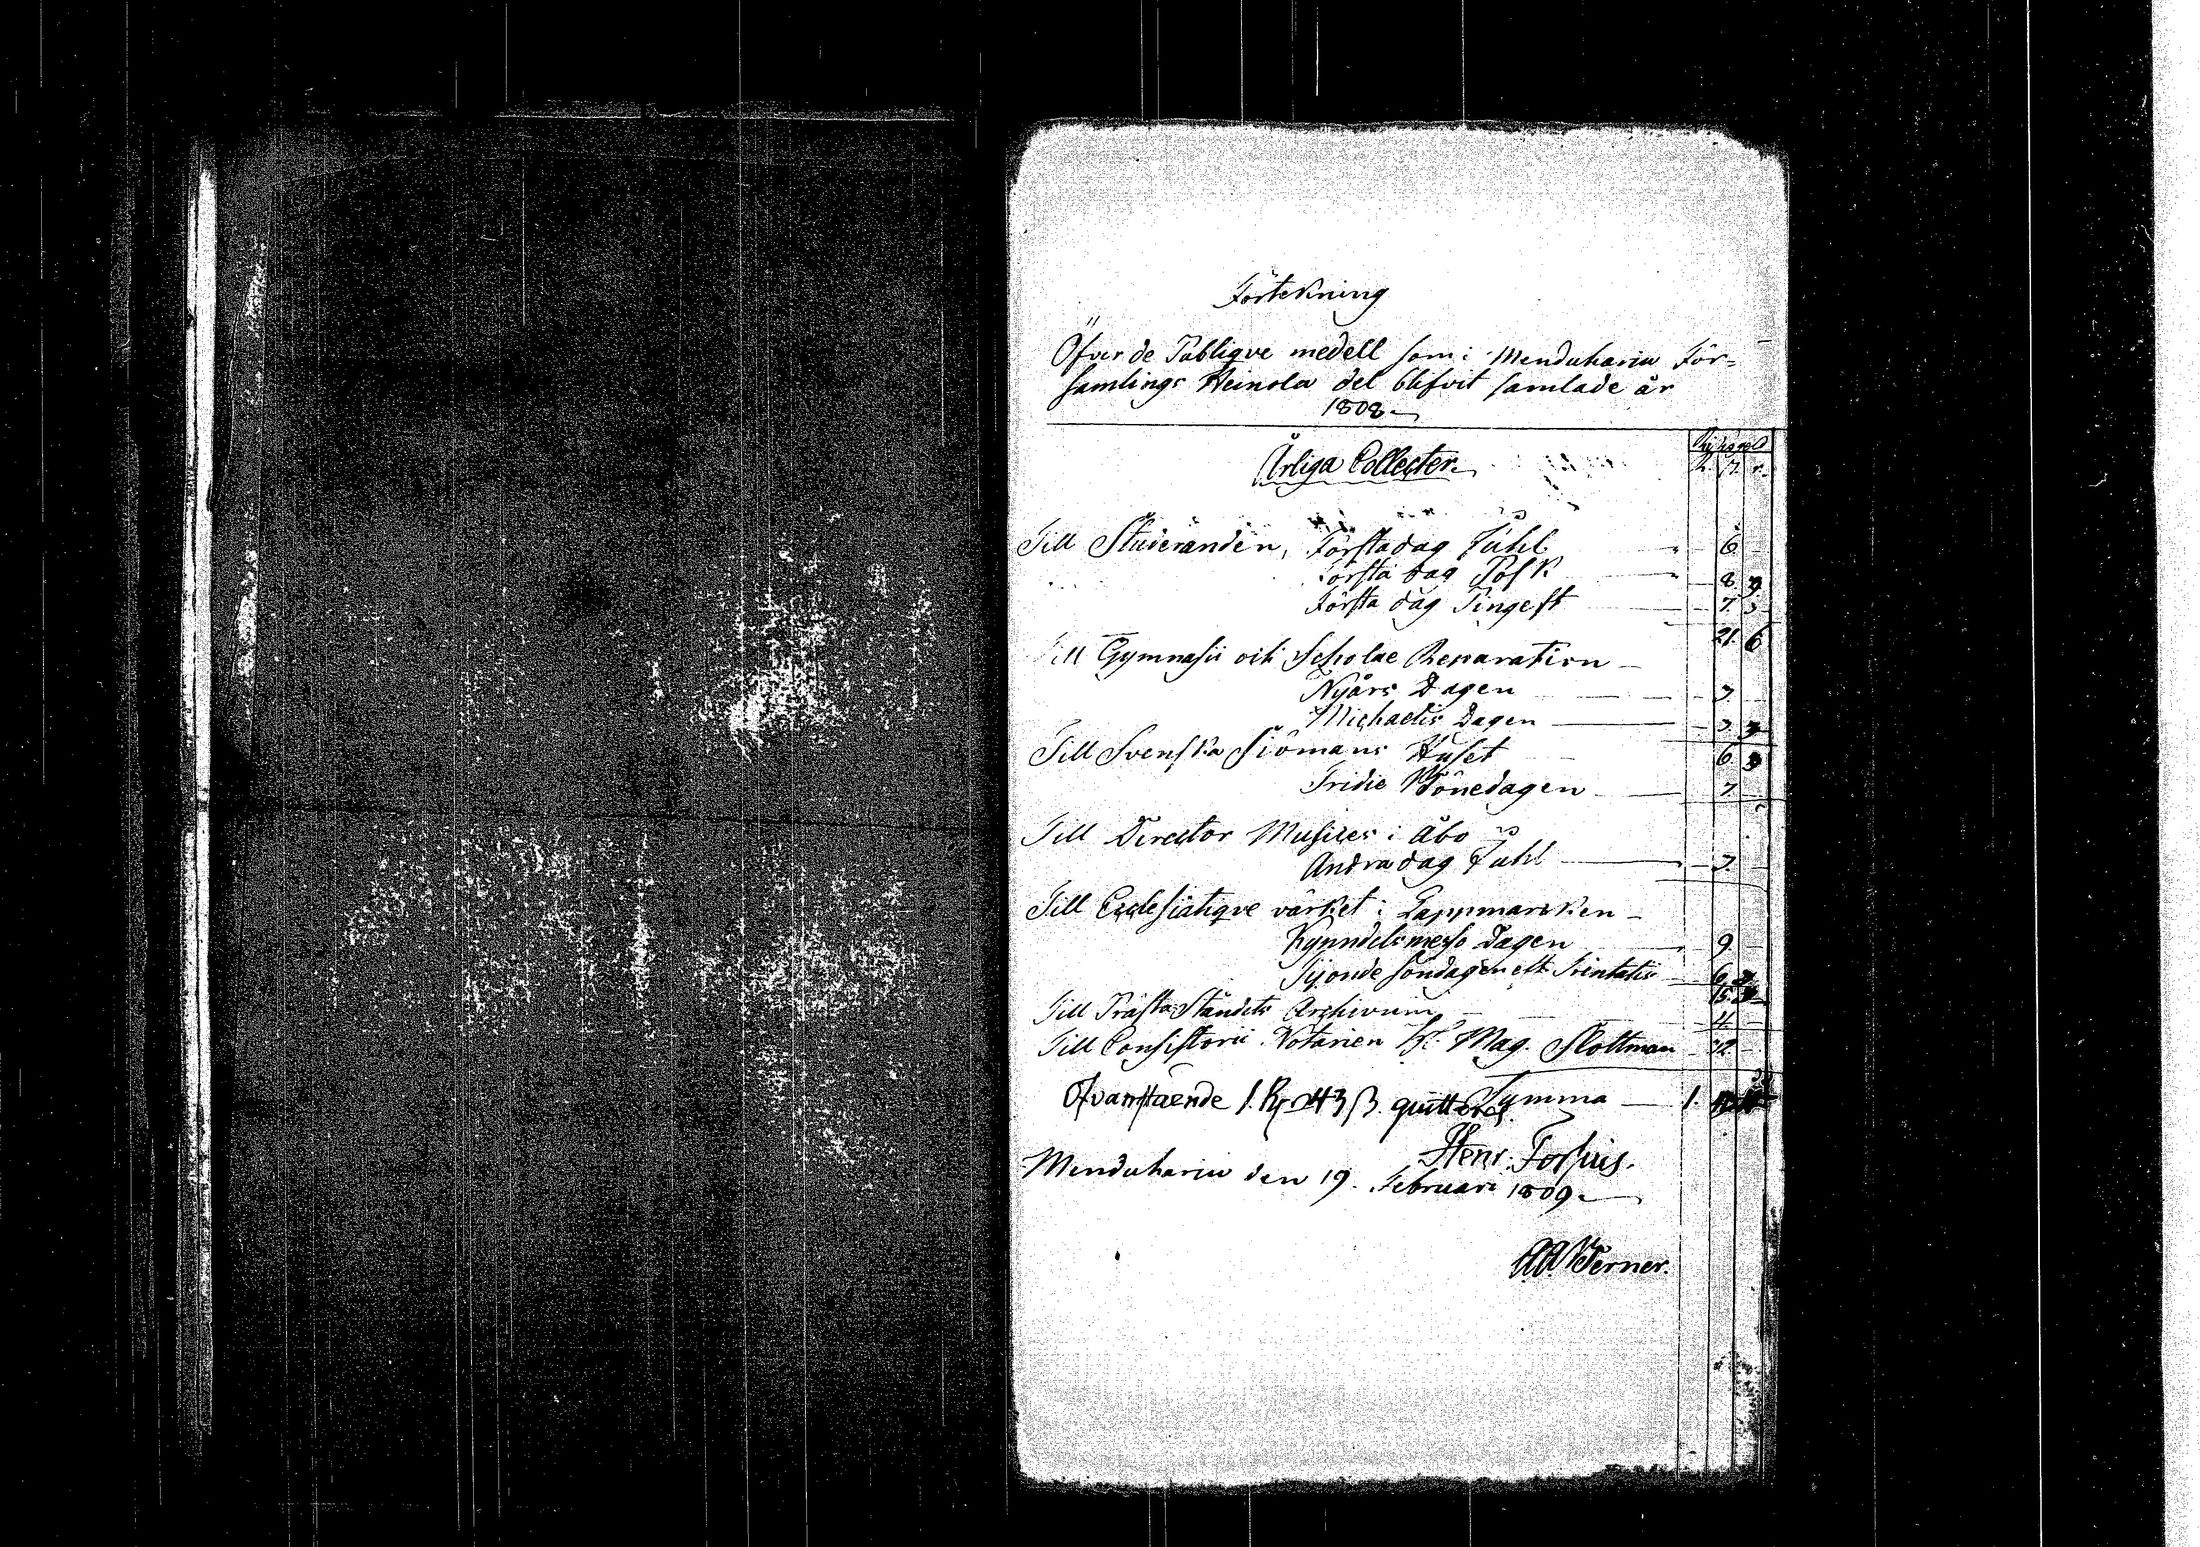 Förtekning
Öfver de Publiqve medell som i Menduhariu För=
samlings Heinola del blifvit samlade år
1808.
Riksgeld
R. ß. r.
Årliga Collecter.
Till Studeranden, Förstadag Juhl 6
Första dag Påsk 8 3
Första dag Pingest 7 3
21 6
Till Gymnasii och Scholae Reparation
Nyårs Dagen 3
Michaelis Dagen 3 3
Till Svenska Siömans Huset 6 3
Tridie Bönedagen 7
Till Director Musices i Åbo
Andra dag Juhl 3
Till Ecclesiatiqve värket i Lappmarcken
Kynndelsmesso Dagen 9
Sjonde Söndagen eft Trinitatis 6
15
Till Prästa Ståndets Archivum 4
Till Consistorii Notarien Hr Mag. Slottman 12
Summa 1.
Ofvanstående 1. Rj 43 ß. quitteras
Henr. Forsius.
Menduhariu den 19. Februari 1809.
Werner.